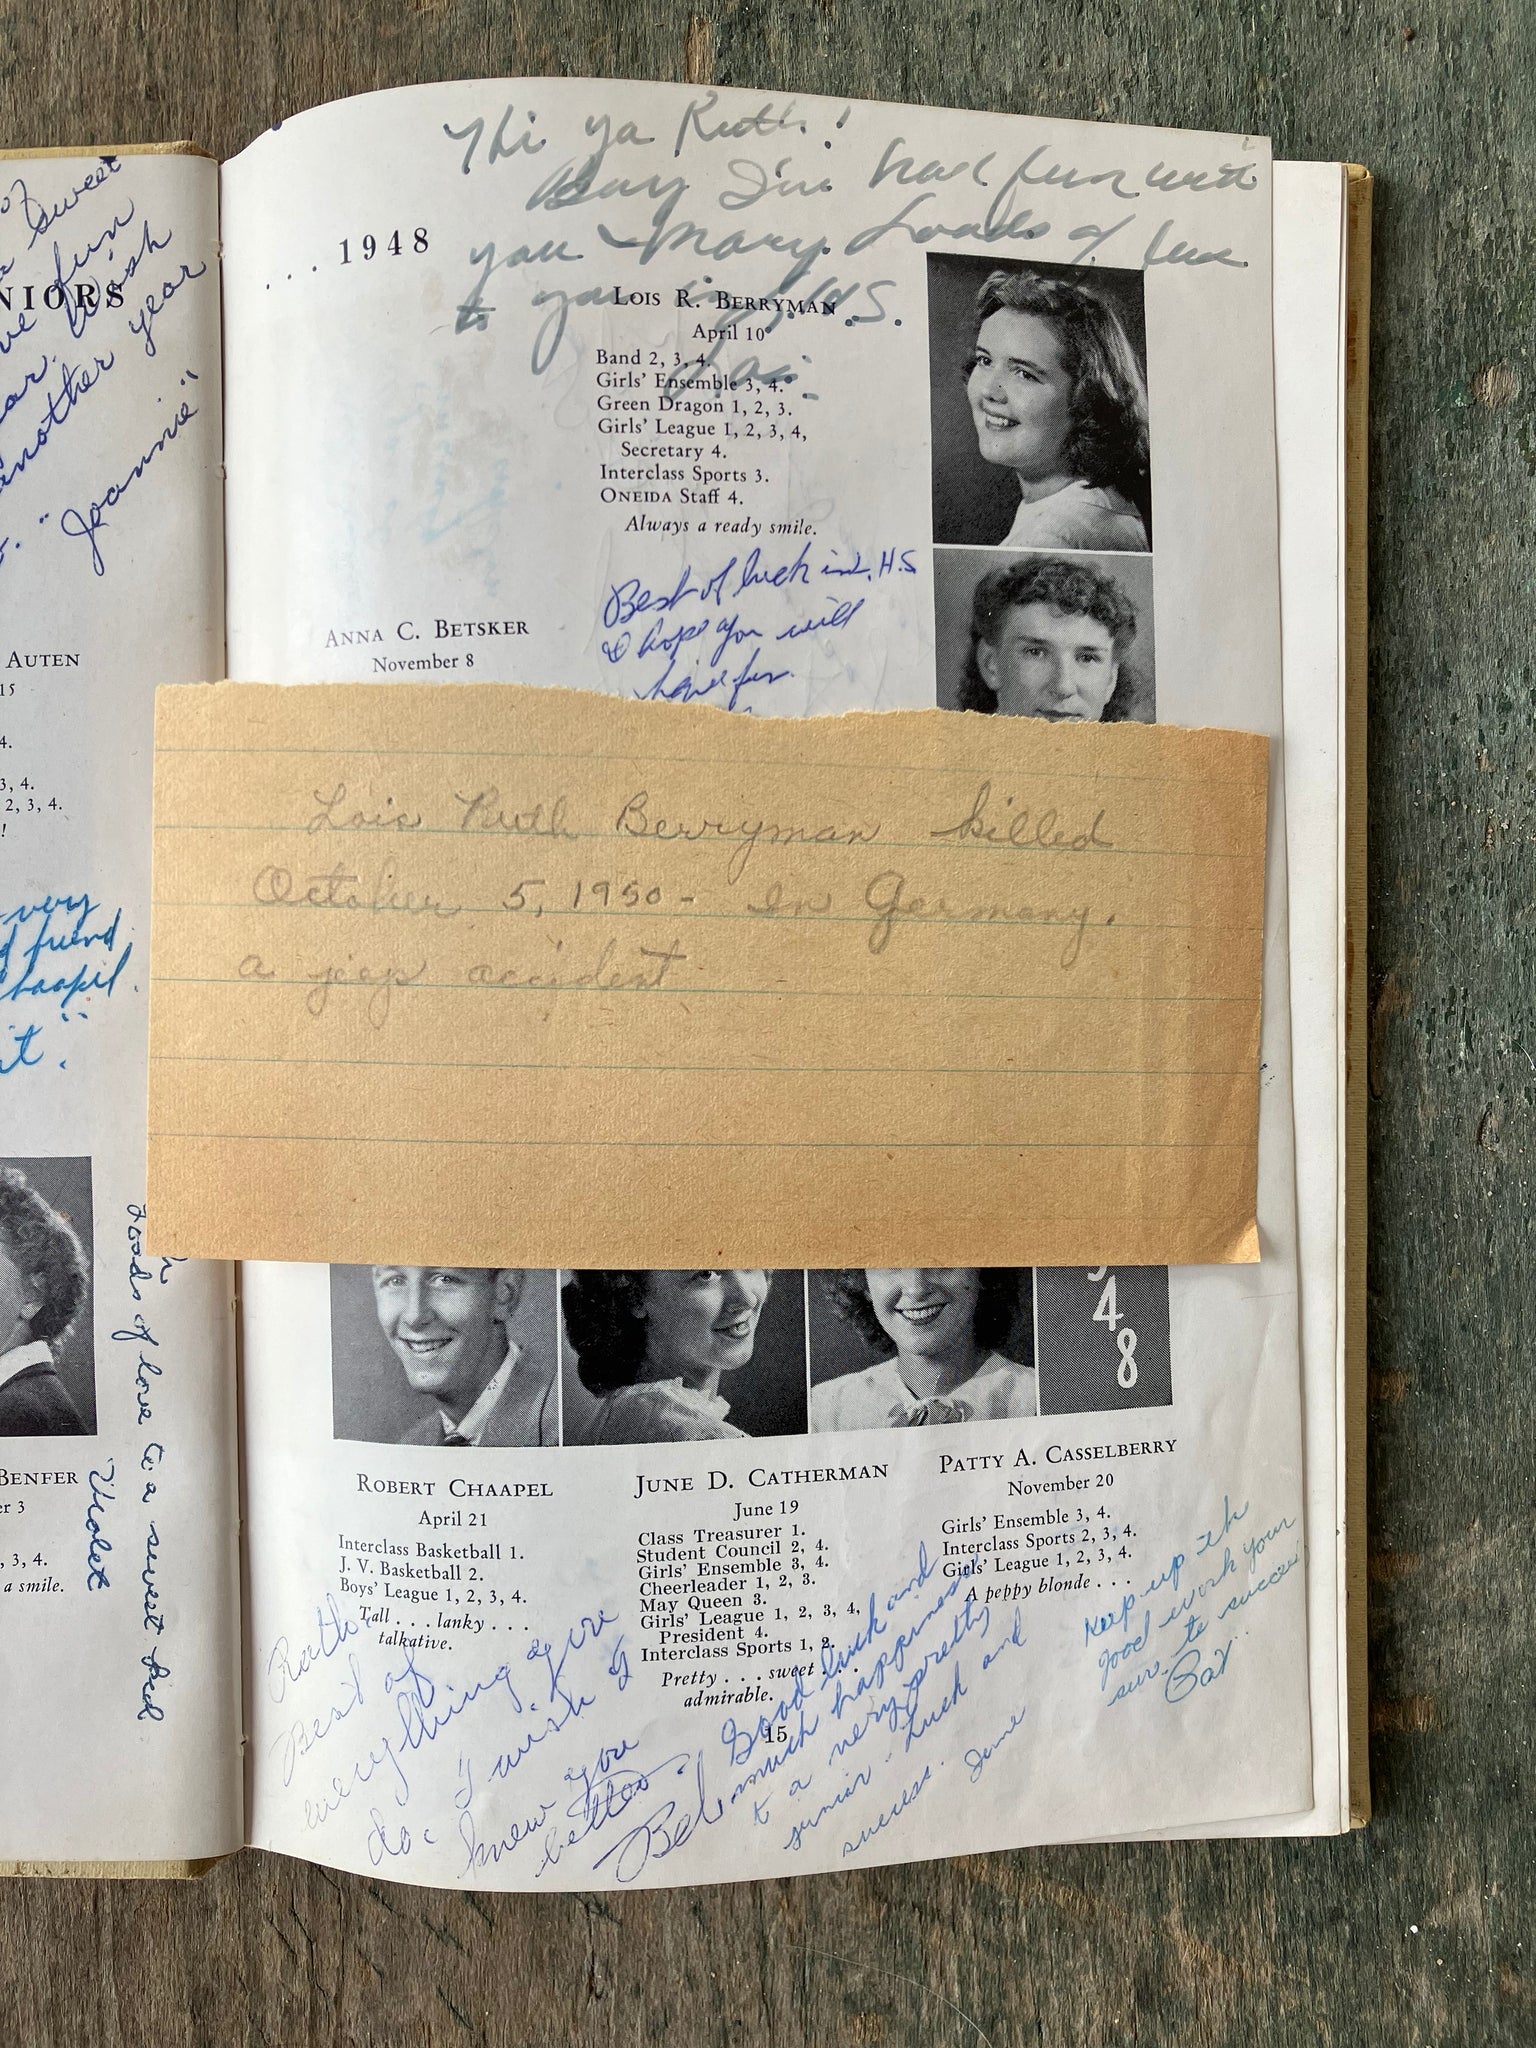 of
sweet
fun
wish
another year
"Joannie"
NIORS
AUTEN
15
4.
3, 4.
2, 3, 4.
!
very
friend
Chaapel.
it."
BENFER
er 3
, 3, 4.
a smile.
Loads of love to a sweet kid
Violet
Hi ya Ruth!
Boy I've had fun with
you & Mary. Loads of luck
to you in S.H.S.
Lois.
. . . 1948
LOIS R. BERRYMAN
April 10
Band 2, 3, 4.
Girls' Ensemble 3, 4.
Green Dragon 1, 2, 3.
Girls' League 1, 2, 3, 4,
Secretary 4.
Interclass Sports 3.
ONEIDA Staff 4.
Always a ready smile.
Best of luck in H.S
I hope you will
have fun.
ANNA C. BETSKER
November 8
Lois Ruth Berryman killed
October 5, 1950 - In Germany.
a jeep accident
48
ROBERT CHAAPEL
April 21
Interclass Basketball 1.
J. V. Basketball 2.
Boys' League 1, 2, 3, 4.
Tall . . . lanky . . .
talkative.
JUNE D. CATHERMAN
June 19
Class Treasurer 1.
Student Council 2, 4.
Girls' Ensemble 3, 4.
Cheerleader 1, 2, 3.
May Queen 3.
Girls' League 1, 2, 3, 4,
President 4.
Interclass Sports 1, 2.
Pretty . . . sweet . . .
admirable.
PATTY A. CASSELBERRY
November 20
Girls' Ensemble 3, 4.
Interclass Sports 2, 3, 4.
Girls' League 1, 2, 3, 4.
A peppy blonde . . .
Ruth,
Best of
everything you
do. I wish I
knew you
better.
Bob
Good luck and
much happiness
to a very pretty
junior. Luck and
success. June
Keep up the
good work your
sure to succeed.
Pat
15